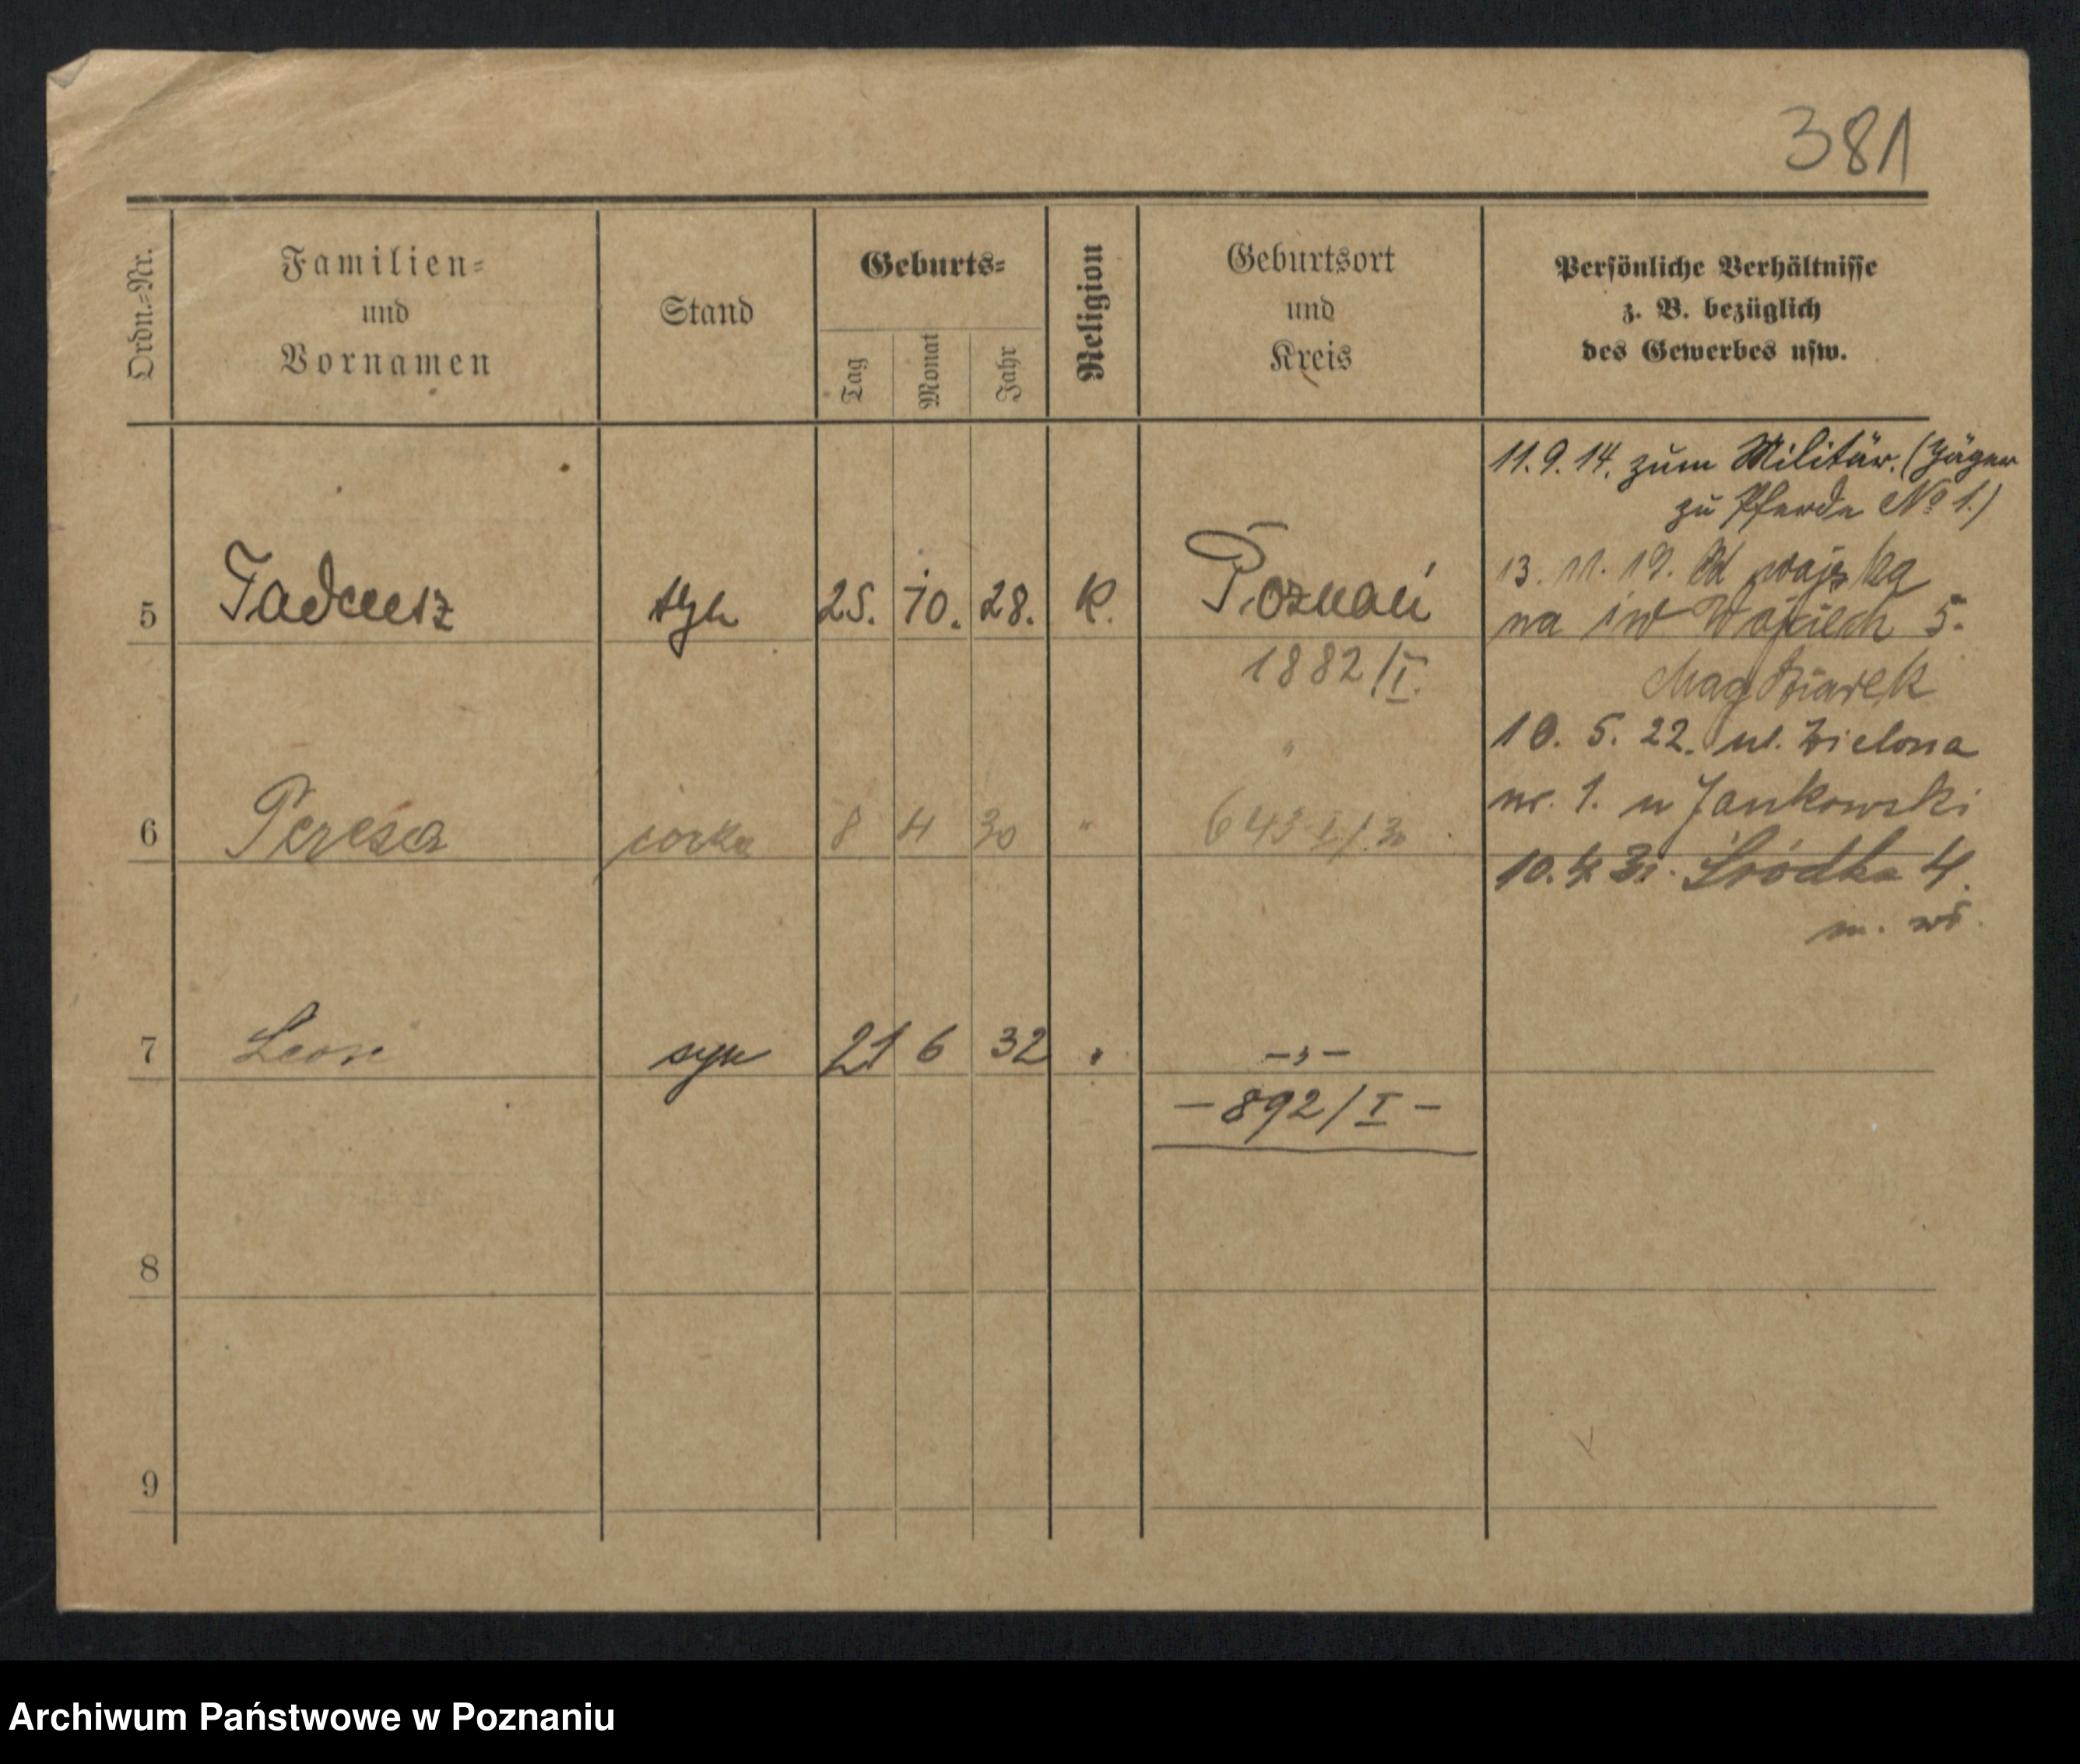 381
Ordn.-Nr.
Familien-
und
Vornamen
Stand
Geburts-
Tag
Monat
Jahr
Religion
Geburtsort
und
Kreis
Persönliche Verhältnisse
z. B. bezüglich
des Gewerbes usw.
11.9.14. zum Militär. (Jäger
zu Pferde No 1.)
13. 11. 19. Od wojska
na św Wojciech 5.
10. 5. 22. ul. Zielona
nr. 1. u Jankowski
10. 4. 31. Śródka 4.
5 Tadeusz syn 25. 10. 28. K. Poznań
1882/I.
"
6 Teresa córka 8 4 30 " 643 I/30
7 Leon syn 21 6 32 " -"-
- 892/I -
8
9
Archiwum Państwowe w Poznaniu